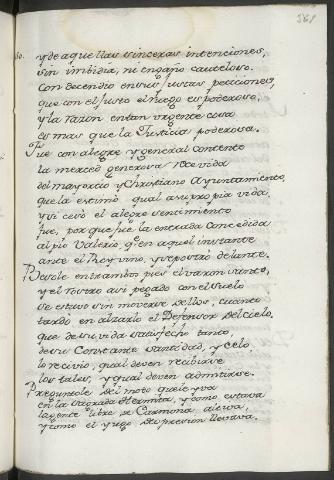 361
y de aquellas sinceras intenciones,
sin imbidia, ni engaño cauteloso.
Condecendio en sus justas peticiones,
que con el Justo el ruego es poderoso,
y la razon en tan urgente cosa
es mas que la Justicia poderosa.
Fue con alegre y general contento
la merced generosa recevida
del mayor cio y Christiano Ayuntamiento,
que la estimó qual a su propia vida
y si cesó el alegre sentimiento
fue, por que fue la entrada concedida
al pío Valerio, qe. en aquel instante
ante el Rey vino, y se postró delante.
Besole entrambos pies el varon santo,
y el rostro asi pegado con el suelo
se estuvo sin moverse dellos, quanto
tardo en alzarlo el Defensor del cielo,
que de su vida satisfecho tanto,
de su Constante santidad, y celo
lo recivió, qual deven recibirse
los tales, y qual deven admitirse.
Preguntole del modo que le yva
en la sagrada Hermita, y como estava
la gente libre de Carmona altiva,
y como el yugo de prision llevava.